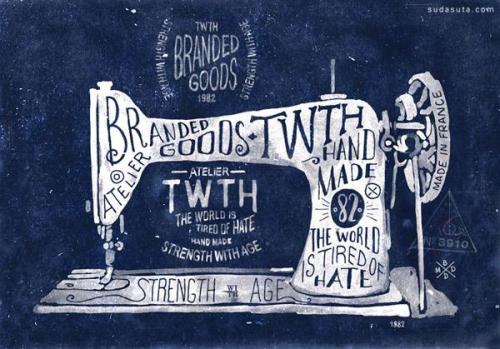 sudasuta.com
TWTH
BRANDED
GOODS
1982
STRENGTH WITH AGE
STRENGTH WITH AGE
BRANDED
GOODS · TWTH
ATELIER
HAND
MADE
82
THE WORLD
IS TIRED OF
HATE
MADE IN FRANCE
— ATELIER —
TWTH
THE WORLD IS
TIRED OF HATE
HAND MADE
STRENGTH WITH AGE
Nº 3910
STRENGTH WITH AGE
1982